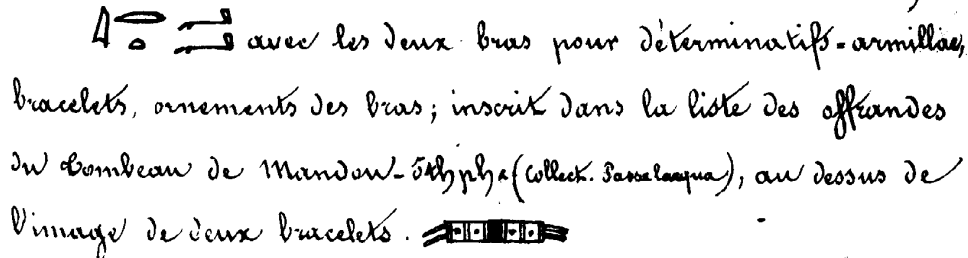 avec les deux bras pour déterminatifs = armillae,
bracelets, ornements des bras ; inscrit dans la liste des offrandes
du tombeau de Mandou- (Collect. Passalacqua), au dessus de
l'image de deux bracelets.